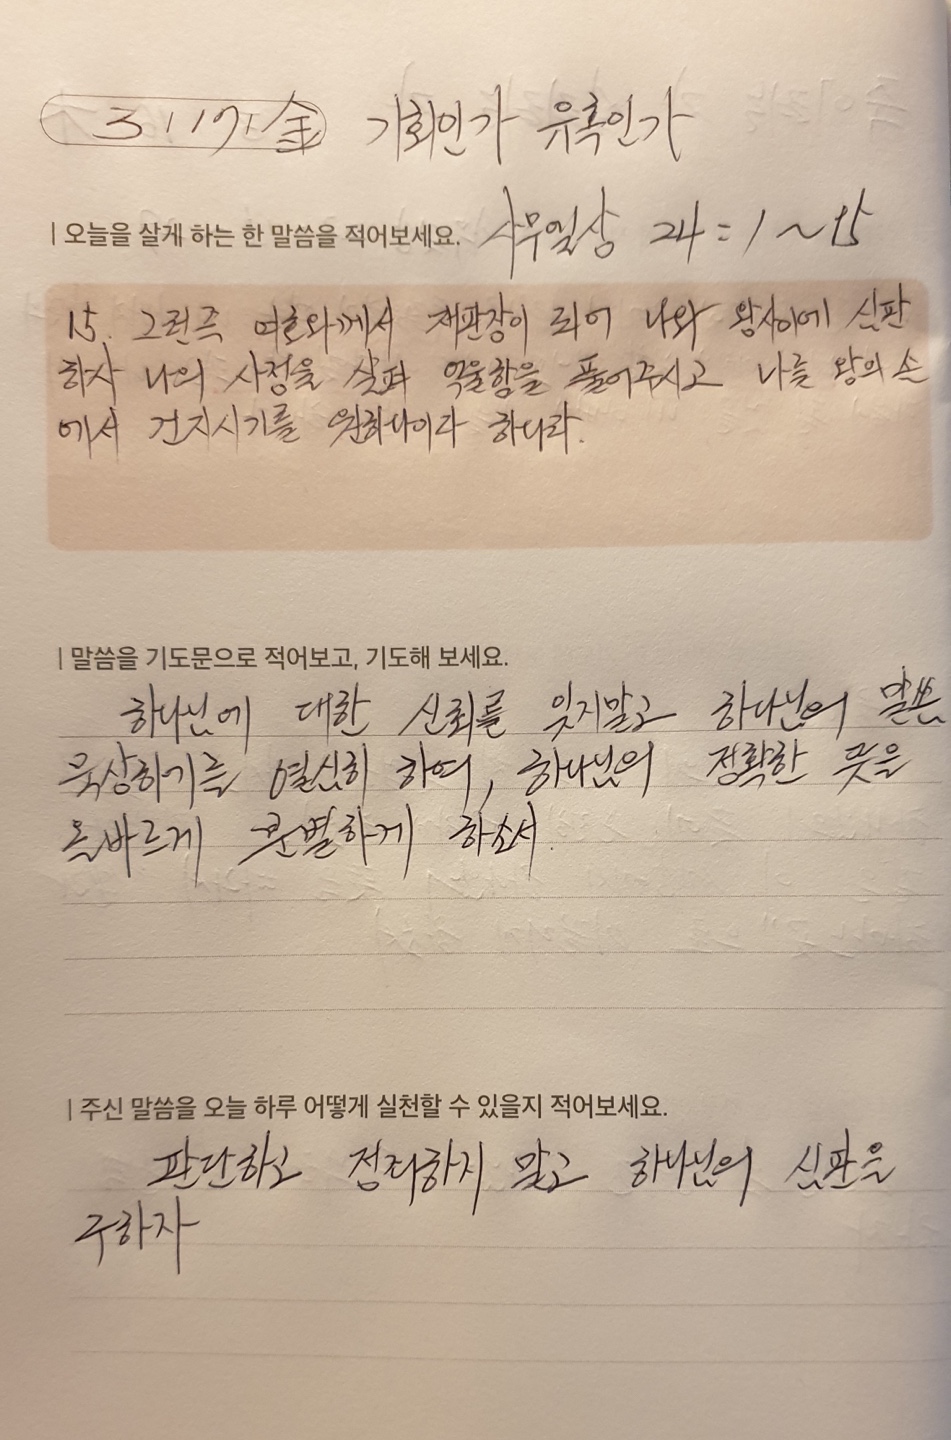 3 / 17 / 金 기회인가 유혹인가
| 오늘을 살게 하는 한 말씀을 적어보세요. 사무엘상 24 : 1 ~ 15
15. 그런즉 여호와께서 재판장이 되어 나와 왕사이에 심판
하사 나의 사정을 살펴 억울함을 풀어주시고 나를 왕의 손
에서 건지시기를 원하나이다 하니라.
| 말씀을 기도문으로 적어보고, 기도해 보세요.
하나님에 대한 신뢰를 잊지말고 하나님의 말씀
묵상하기를 열심히 하여, 하나님의 정확한 뜻을
올바르게 분별하게 하소서.
| 주신 말씀을 오늘 하루 어떻게 실천할 수 있을지 적어보세요.
판단하고 정죄하지 말고 하나님의 심판을
구하자